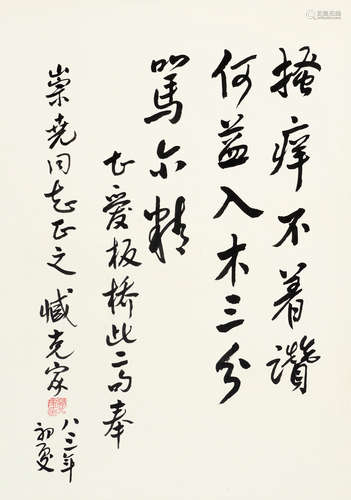 搔痒不着讚
何益入木三分
駡亦精
甚愛板橋此二句奉
崇尧同志正之 臧克家
八三年
初夏